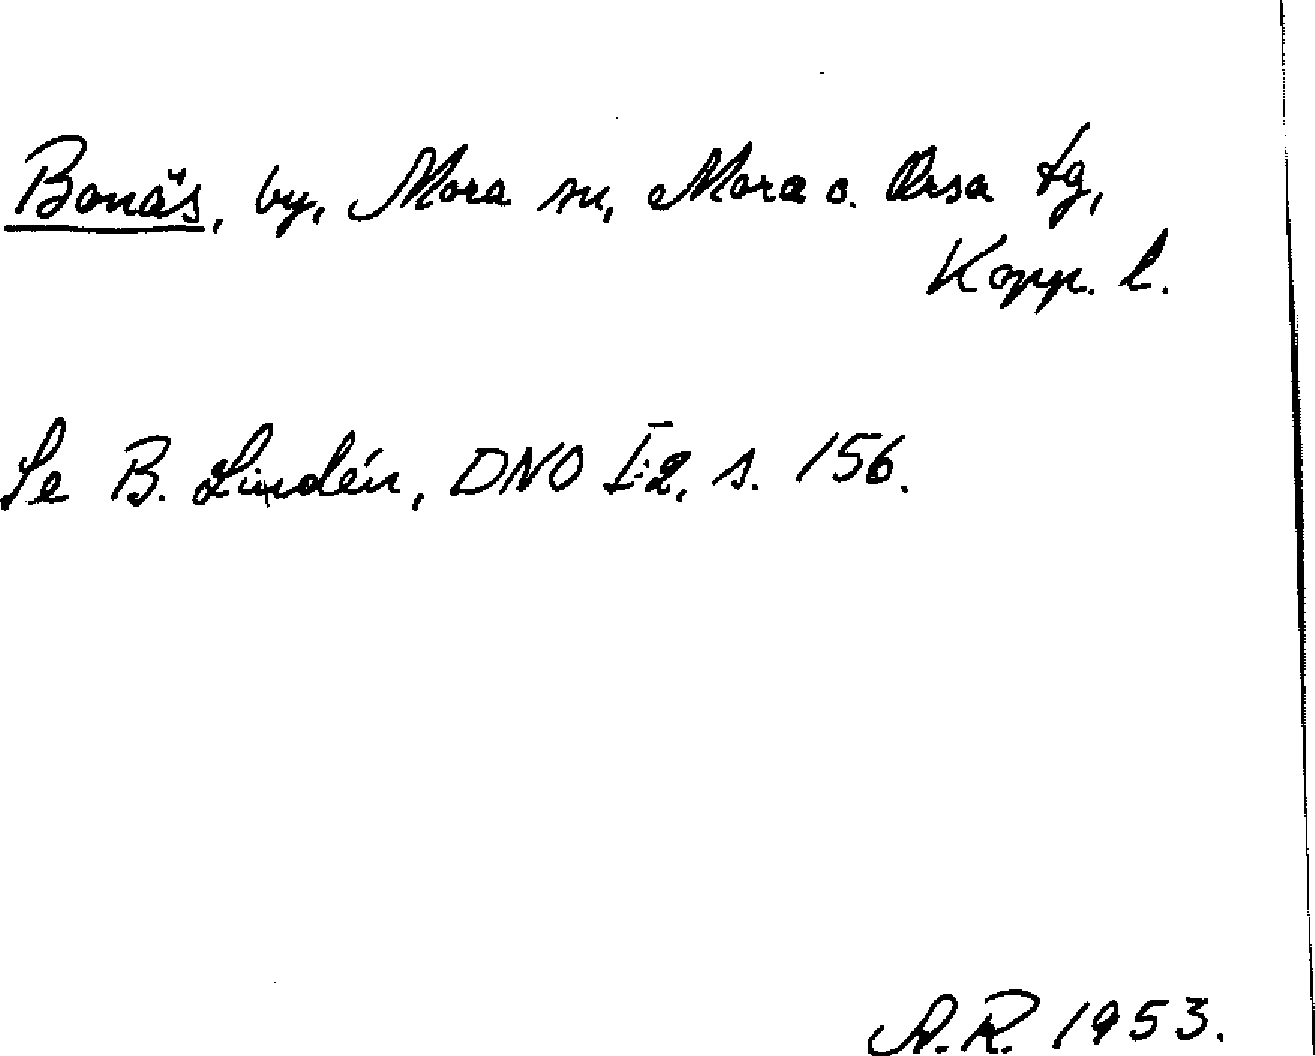 Bonäs, by, Mora sn, Mora o. Orsa tg,
Kopp. l.
Se B. Lindén, DNO I:2, s. 156.
A.R. 1953.